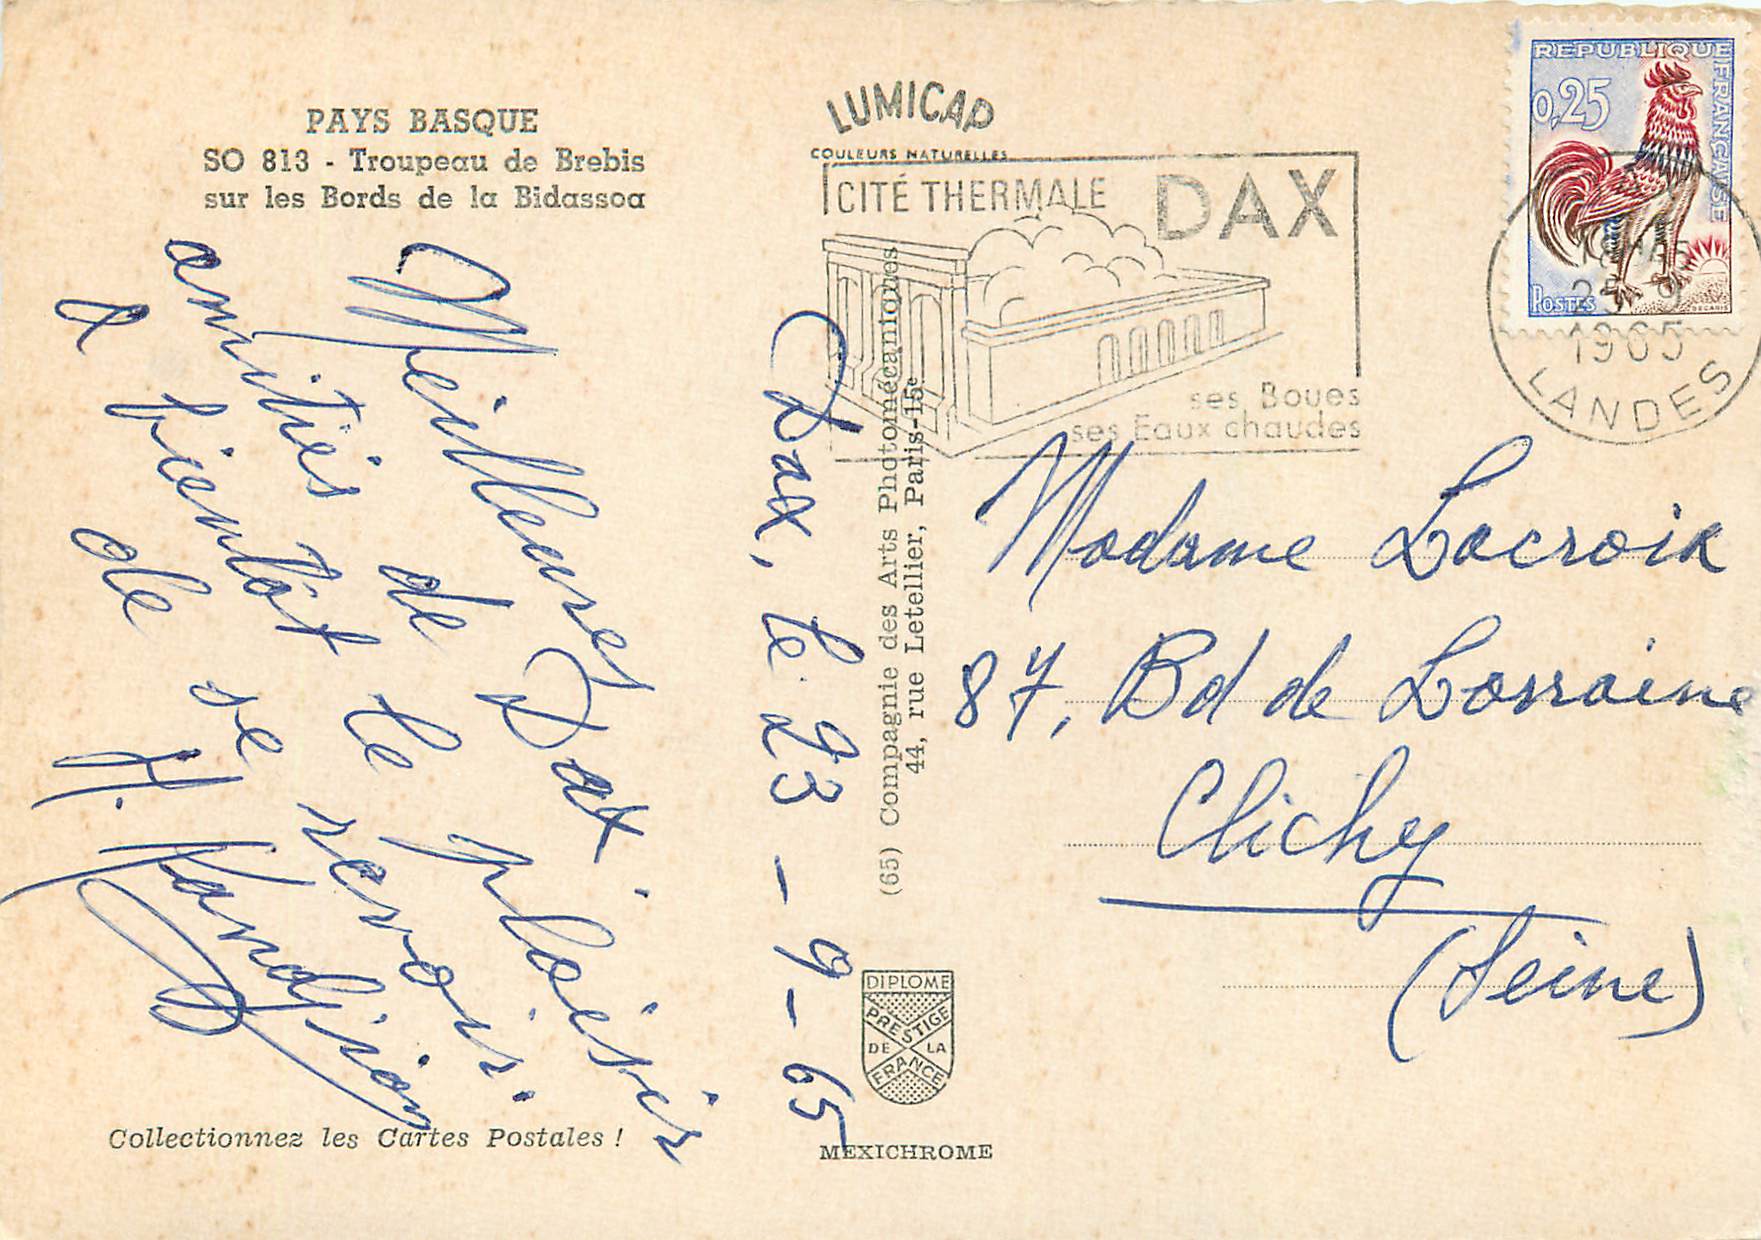 PAYS BASQUE
SO 813 - Troupeau de Brebis
sur les Bords de la Bidassoa
LUMICAP
COULEURS NATURELLES
CITÉ THERMALE DAX
ses Boues
ses Eaux chaudes
REPUBLIQUE FRANÇAISE
0,25
POSTES
DECARIS
1965
LANDES
Dax, le 23-9-65
Meilleures
amitiés de Dax.
A bientôt le plaisir
de se revoir.
H. Kandjian
(65) Compagnie des Arts Photomécaniques
44, rue Letellier, Paris-15e
Madame Lacroix
87, Bd de Lorraine
Clichy
(Seine)
DIPLOME
PRESTIGE
DE LA
FRANCE
Collectionnez les Cartes Postales !
MEXICHROME